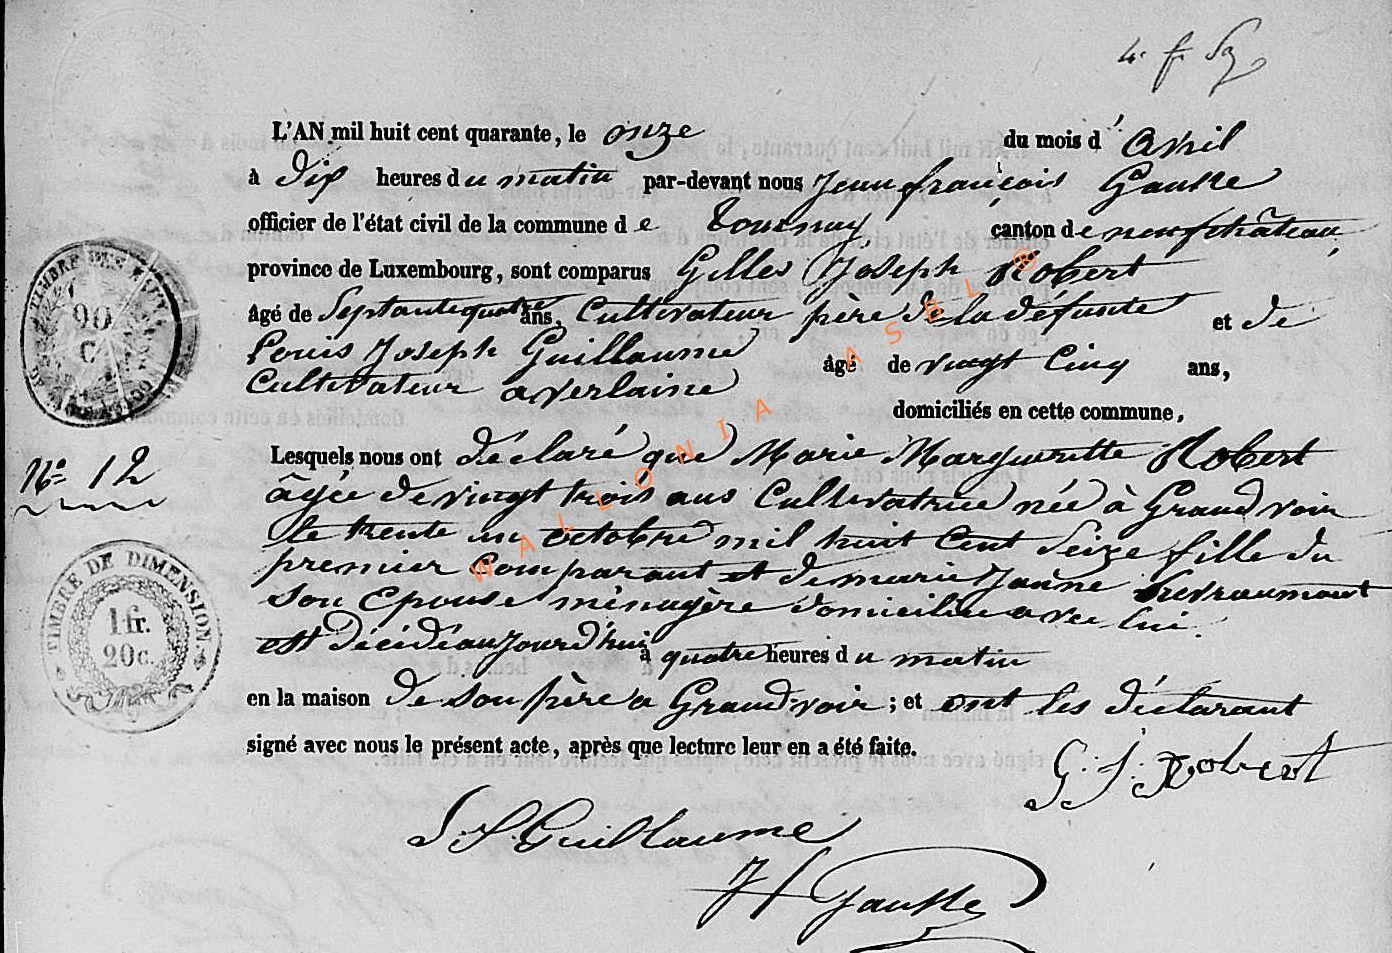 4. f. Sg
L'AN mil huit cent quarante, le onze du mois d'avril
à dix heures du matin par-devant nous Jean françois Gausse
officier de l'état civil de la commune de tournay canton de neufchâteau
province de Luxembourg, sont comparus Gilles Joseph Robert
âgé de Septante quatre ans, Cultivateur père de la défunte et de
Louis Joseph Guillaume âgé de vingt Cinq ans,
Cultivateur a verlaine domiciliés en cette commune,
Lesquels nous ont déclaré que Marie Margueritte Robert
âgée de vingt trois ans Cultivatrice née à Grandvoir
le trente un octobre mil huit Cent Seize fille du
premier Comparant et de marie Jeanne
Son Epouse ménagère domiciliée avec lui.
est décédé aujourd'hui à quatre heures du matin
en la maison de son père a Grandvoir; et ont les déclarant
signé avec nous le présent acte, après que lecture leur en a été faite.
G. J. Robert
L. J. Guillaume
JF Gausse
N° 12
TIMBRE DE DIMENSION.
1 fr.
20 c.
90
C
WALLONIA ASBL ®